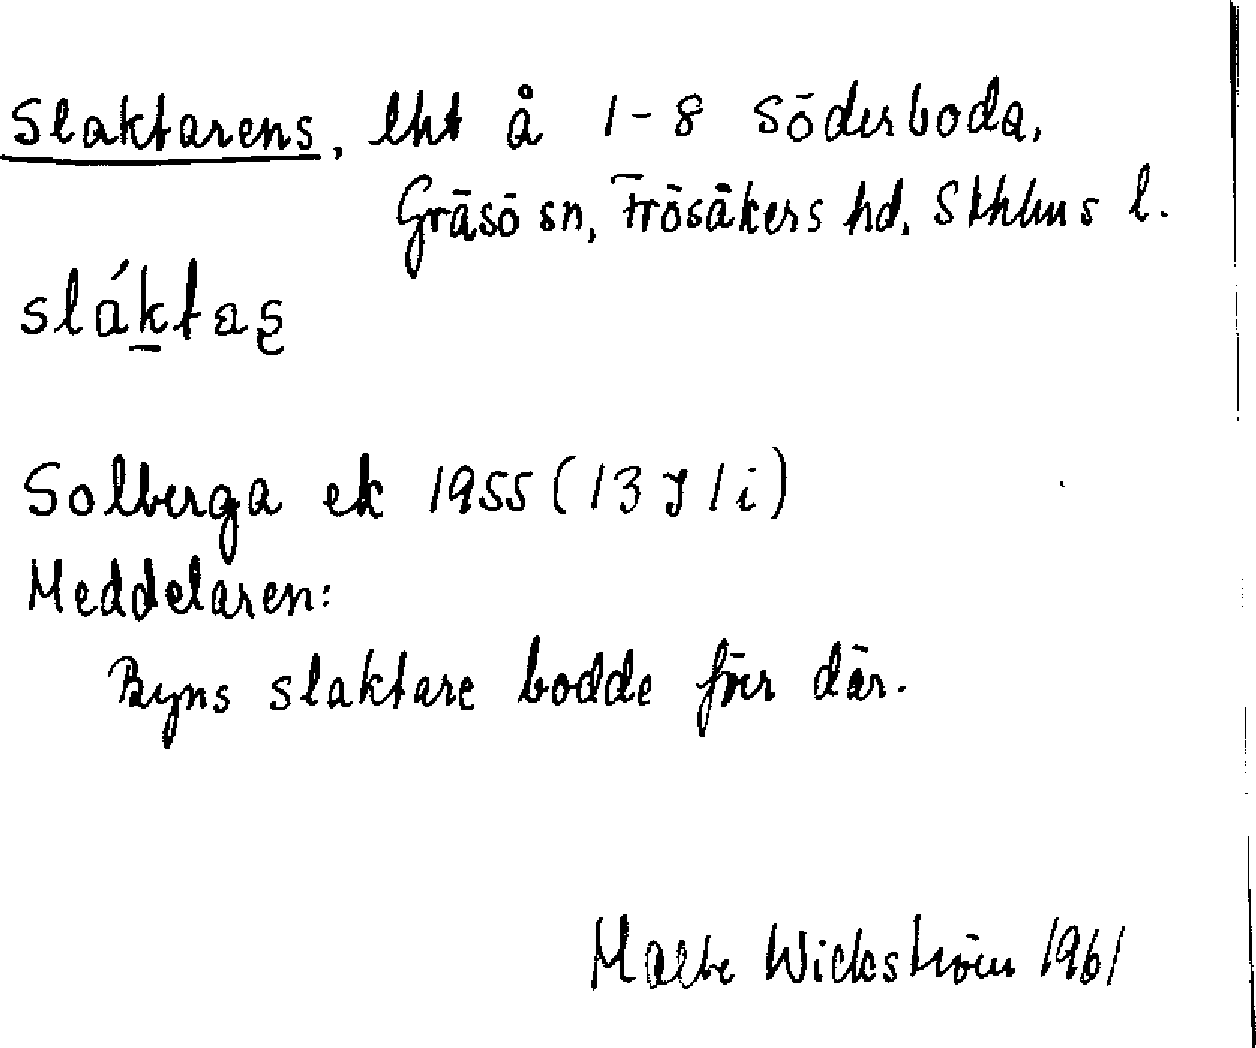 Slaktarens, lht å 1-8 Söderboda,
Gräsö sn, Frösåkers hd, Sthlms l.
sláktas̨
Solberga ek 1955 (13 J 1 i)
Meddelaren:
Byns slaktare bodde förr där.
Malte Wickström 1961